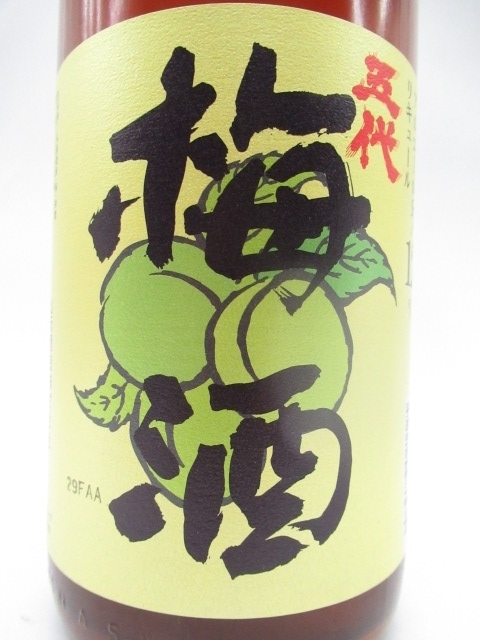 五代
梅酒
リキュール
29FAA